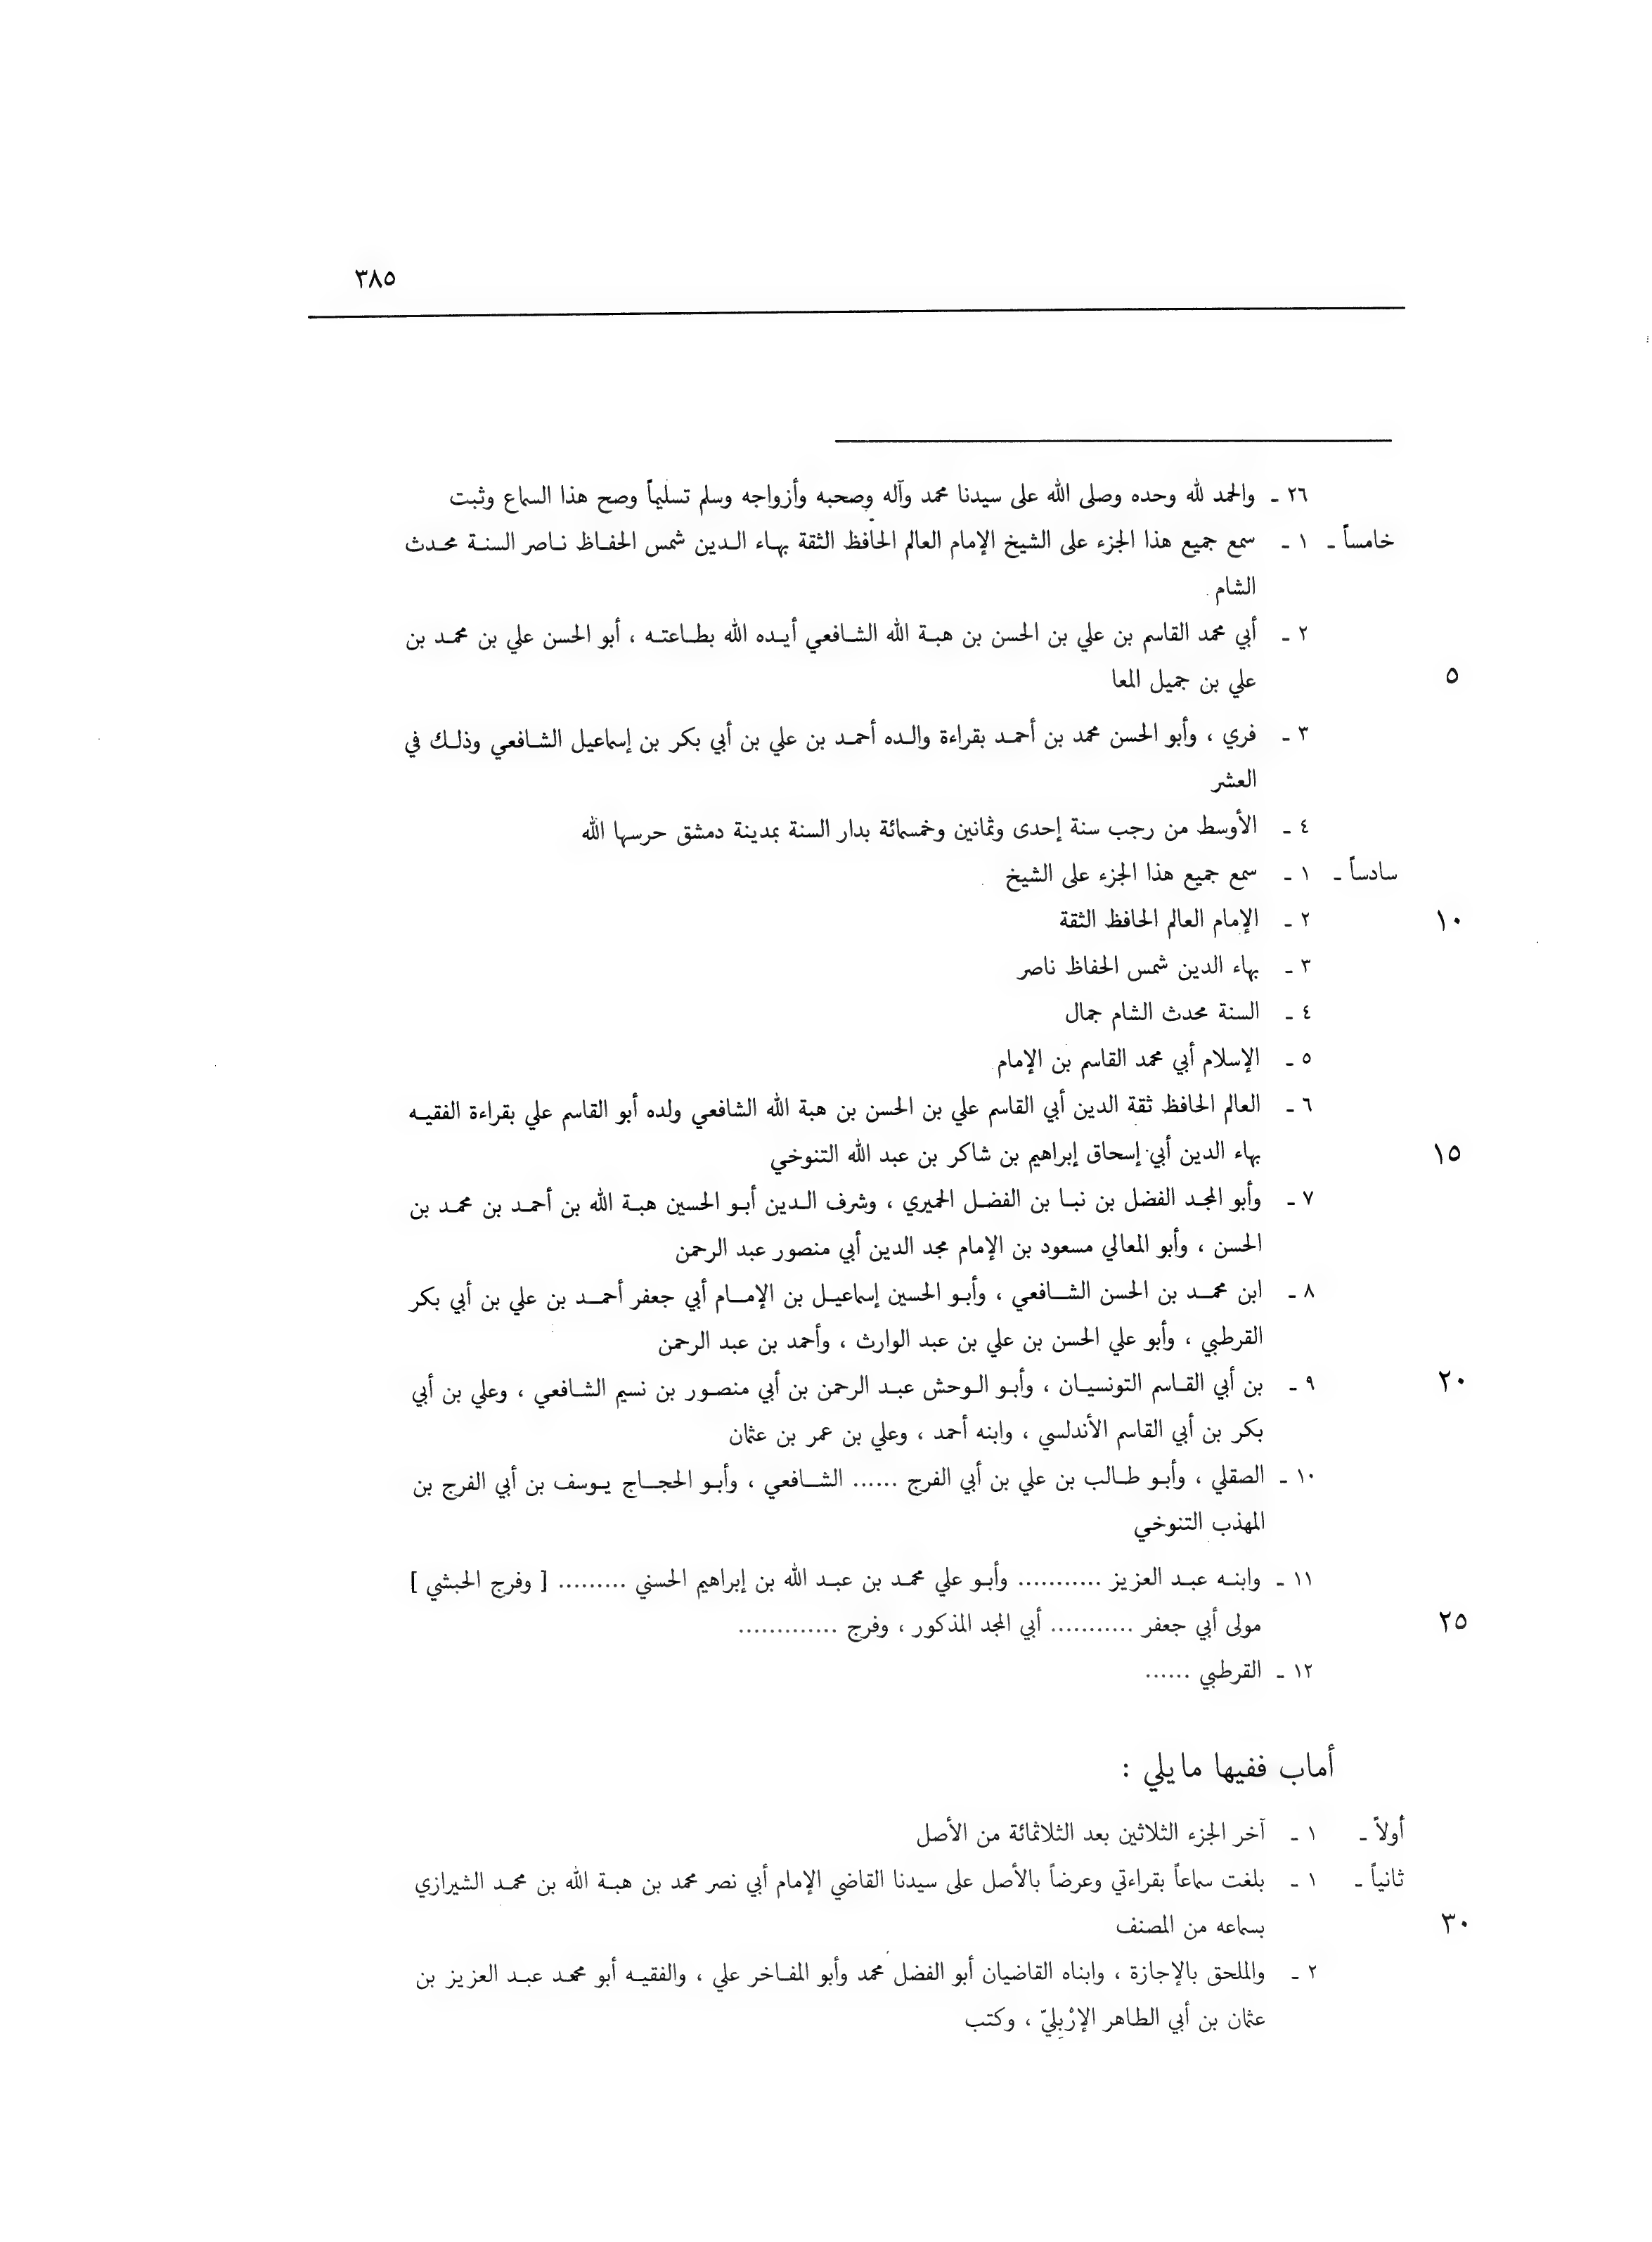 ٣٨٥
٢٦ ـ والحمد لله وحده وصلى الله على سيدنا محمد وآله وصحبه وأزواجه وسلم تسليماً وصح هذا السماع وثبت
خامساً ـ ١ ـ سمع جميع هذا الجزء على الشيخ الإمام العالم الحافظ الثقة بهاء الدين شمس الحفاظ ناصر السنة محدث
الشام
٢ ـ أبي محمد القاسم بن علي بن الحسن بن هبة الله الشافعي أيده الله بطاعته ، أبو الحسن علي بن محمد بن
علي بن جميل المعا ٥
٣ ـ فري ، وأبو الحسن محمد بن أحمد بقراءة والده أحمد بن علي بن أبي بكر بن إسماعيل الشافعي وذلك في
العشر
٤ ـ الأوسط من رجب سنة إحدى وثمانين وخمسمائة بدار السنة بمدينة دمشق حرسها الله
سادساً ـ ١ ـ سمع جميع هذا الجزء على الشيخ
٢ ـ الإمام العالم الحافظ الثقة ١٠
٣ ـ بهاء الدين شمس الحفاظ ناصر
٤ ـ السنة محدث الشام جمال
٥ ـ الإسلام أبي محمد القاسم بن الإمام
٦ ـ العالم الحافظ ثقة الدين أبي القاسم علي بن الحسن بن هبة الله الشافعي ولده أبو القاسم علي بقراءة الفقيه
بهاء الدين أبي إسحاق إبراهيم بن شاكر بن عبد الله التنوخي ١٥
٧ ـ وأبو المجد الفضل بن نبا بن الفضل الحميري ، وشرف الدين أبو الحسين هبة الله بن أحمد بن محمد بن
الحسن ، وأبو المعالي مسعود بن الإمام مجد الدين أبي منصور عبد الرحمن
٨ ـ ابن محمد بن الحسن الشافعي ، وأبو الحسين إسماعيل بن الإمام أبي جعفر أحمد بن علي بن أبي بكر
القرطبي ، وأبو علي الحسن بن علي بن عبد الوارث ، وأحمد بن عبد الرحمن
٩ ـ بن أبي القاسم التونسيان ، وأبو الوحش عبد الرحمن بن أبي منصور بن نسيم الشافعي ، وعلي بن أبي ٢٠
بكر بن أبي القاسم الأندلسي ، وابنه أحمد ، وعلي بن عمر بن عثمان
١٠ ـ الصقلي ، وأبو طالب بن علي بن أبي الفرج ...... الشافعي ، وأبو الحجاج يوسف بن أبي الفرج بن
المهذب التنوخي
١١ ـ وابنه عبد العزيز ........... وأبو علي محمد بن عبد الله بن إبراهيم الحسني ......... [ وفرج الحبشي ]
مولى أبي جعفر ........... أبي المجد المذكور ، وفرج ............. ٢٥
١٢ ـ القرطبي ......
أماب ففيها مايلي :
أولاً ـ ١ ـ آخر الجزء الثلاثين بعد الثلاثمائة من الأصل
ثانياً ـ ١ ـ بلغت سماعاً بقراءتي وعرضاً بالأصل على سيدنا القاضي الإمام أبي نصر محمد بن هبة الله بن محمد الشيرازي
بسماعه من المصنف ٣٠
٢ ـ والملحق بالإجازة ، وابناه القاضيان أبو الفضل محمد وأبو المفاخر علي ، والفقيه أبو محمد عبد العزيز بن
عثمان بن أبي الطاهر الإرْبِليّ ، وكتب